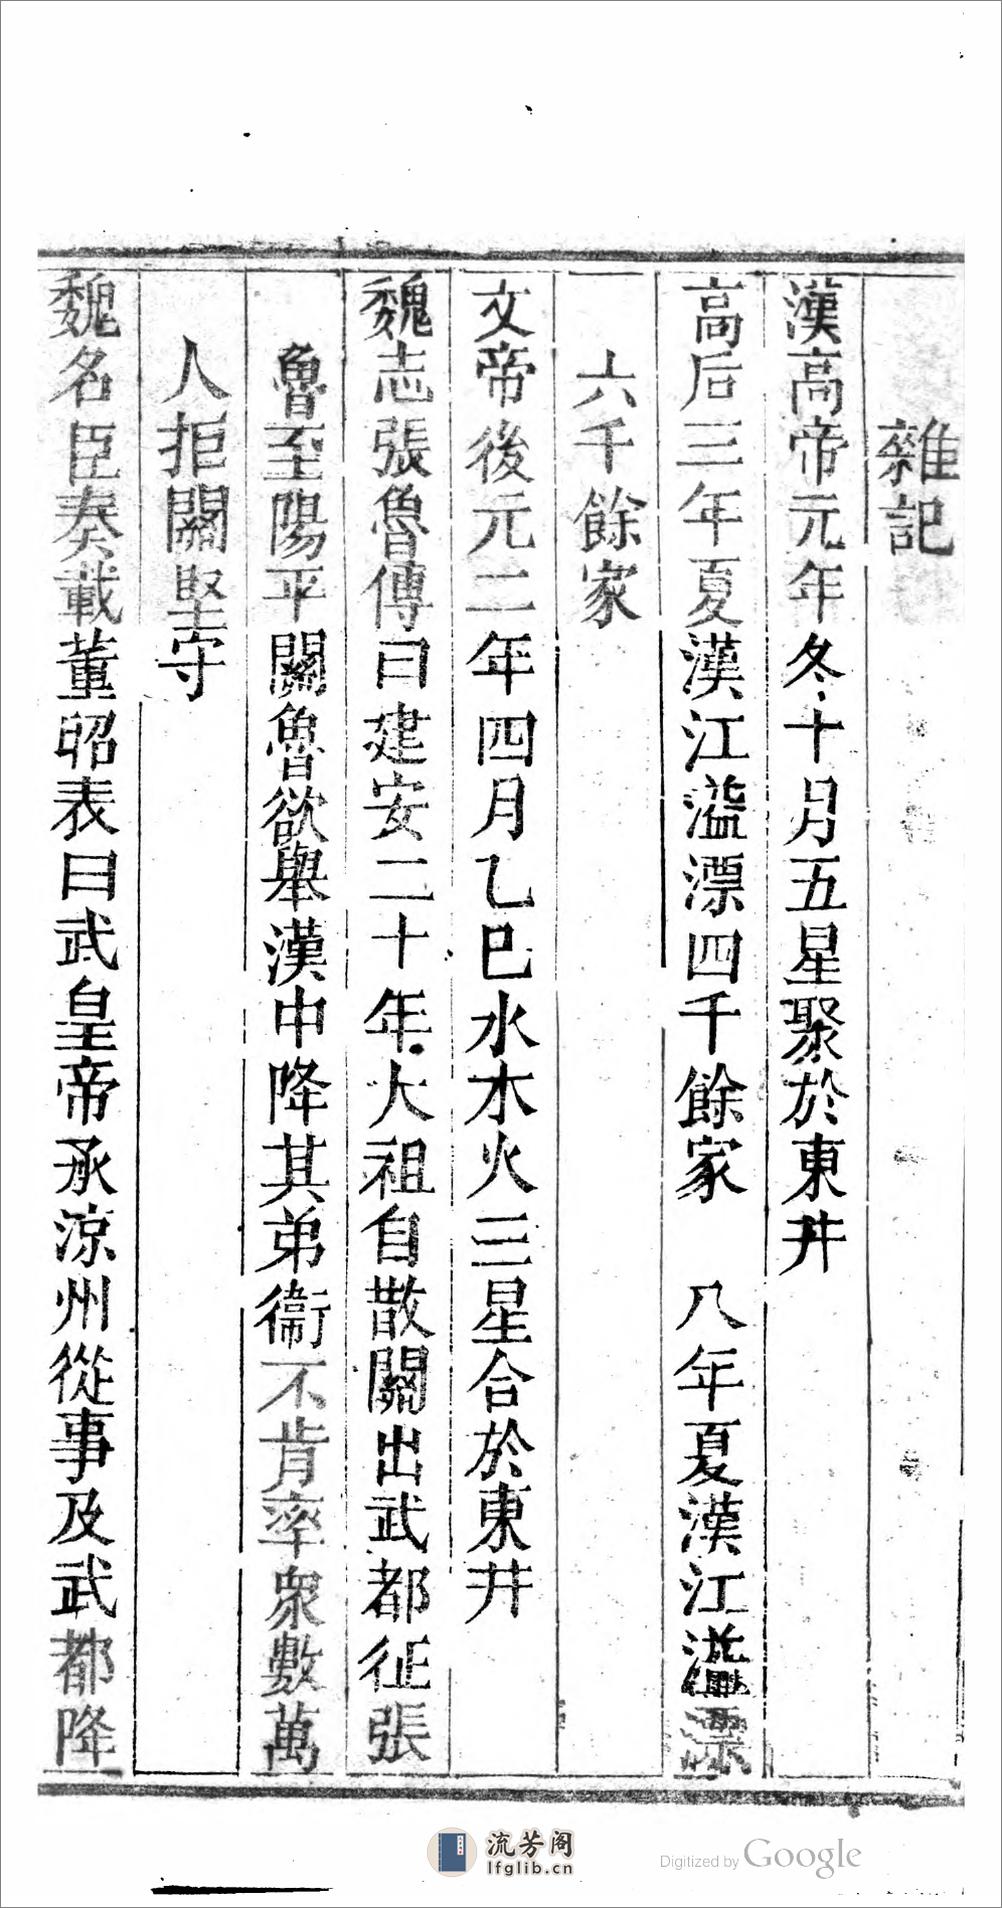 雜記
漢高帝元年冬十月五星聚於東井
高后三年夏漢江溢漂四千餘家　八年夏漢江溢漂
六千餘家
文帝後元二年四月乙巳水木火三星合於東井
魏志張魯傳曰建安二十年大祖自散關出武都征張
魯至陽平關魯欲舉漢中降其弟衞不肯率衆數萬
人拒關堅守
魏名臣奏載董昭表曰武皇帝承涼州從事及武都降
流芳阁
lfglib.cn
Digitized by Google